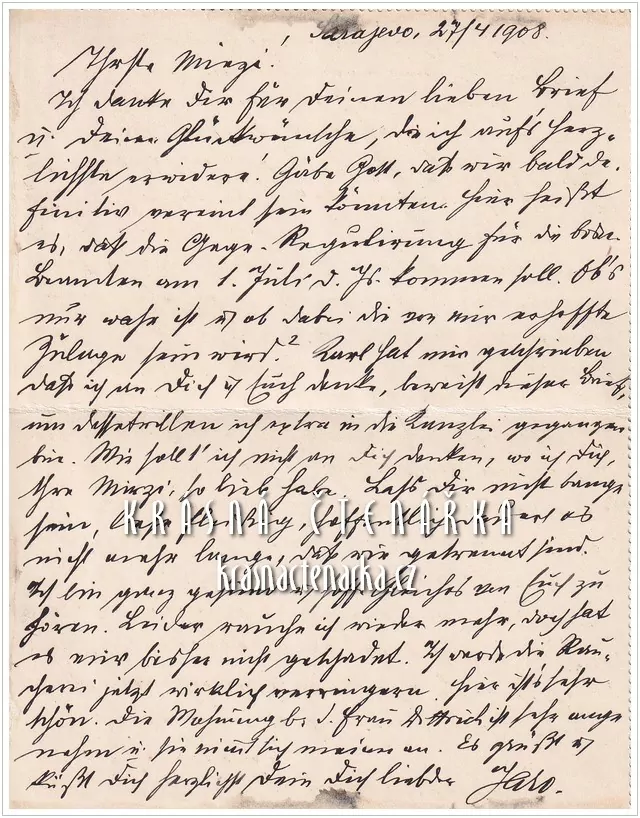 Sarajevo, 27/4 1908.
Mirzi!
Ich danke Dir für Deinen lieben Brief
u. Deine Glückwünsche, die ich aufs herz-
lichste erwidere! Gäbe Gott, daß wir bald de-
finitiv vereint sein könnten. Hier heißt
es, daß die Gage-Regulirung für die bosn.
Beamten am 1. Juli d. Js. kommen soll. Ob's
nur wahr ist u. ob dabei die von mir erhoffte
Zulage sein wird? Karl hat mir geschrieben
daß ich an Dich u. Euch denke, beweist dieser Brief,
um dessetwillen ich extra in die Kanzlei gegangen
bin. Wie sollt' ich nicht an Dich denken, wo ich Dich,
Mirzi, so lieb habe. Lass Dir nicht bange
sein, hoffentlich dauert es
KRÁSNÁ ČTENÁŘKA
nicht mehr lange, daß wir getrennt sind.
krasnactenarka.cz
Ich bin ganz gesund u. hoffe gleiches von Euch zu
hören. Leider rauche ich wieder mehr, doch hat
es mir bisher nicht geschadet. Ich werde die Rau-
cherei jetzt wirklich verringern. Hier ist's sehr
schön. Die Wohnung b. d. Frau ist sehr ange
nehm u. Es grüßt u.
küßt Dich herzlichst Dein Dich liebder